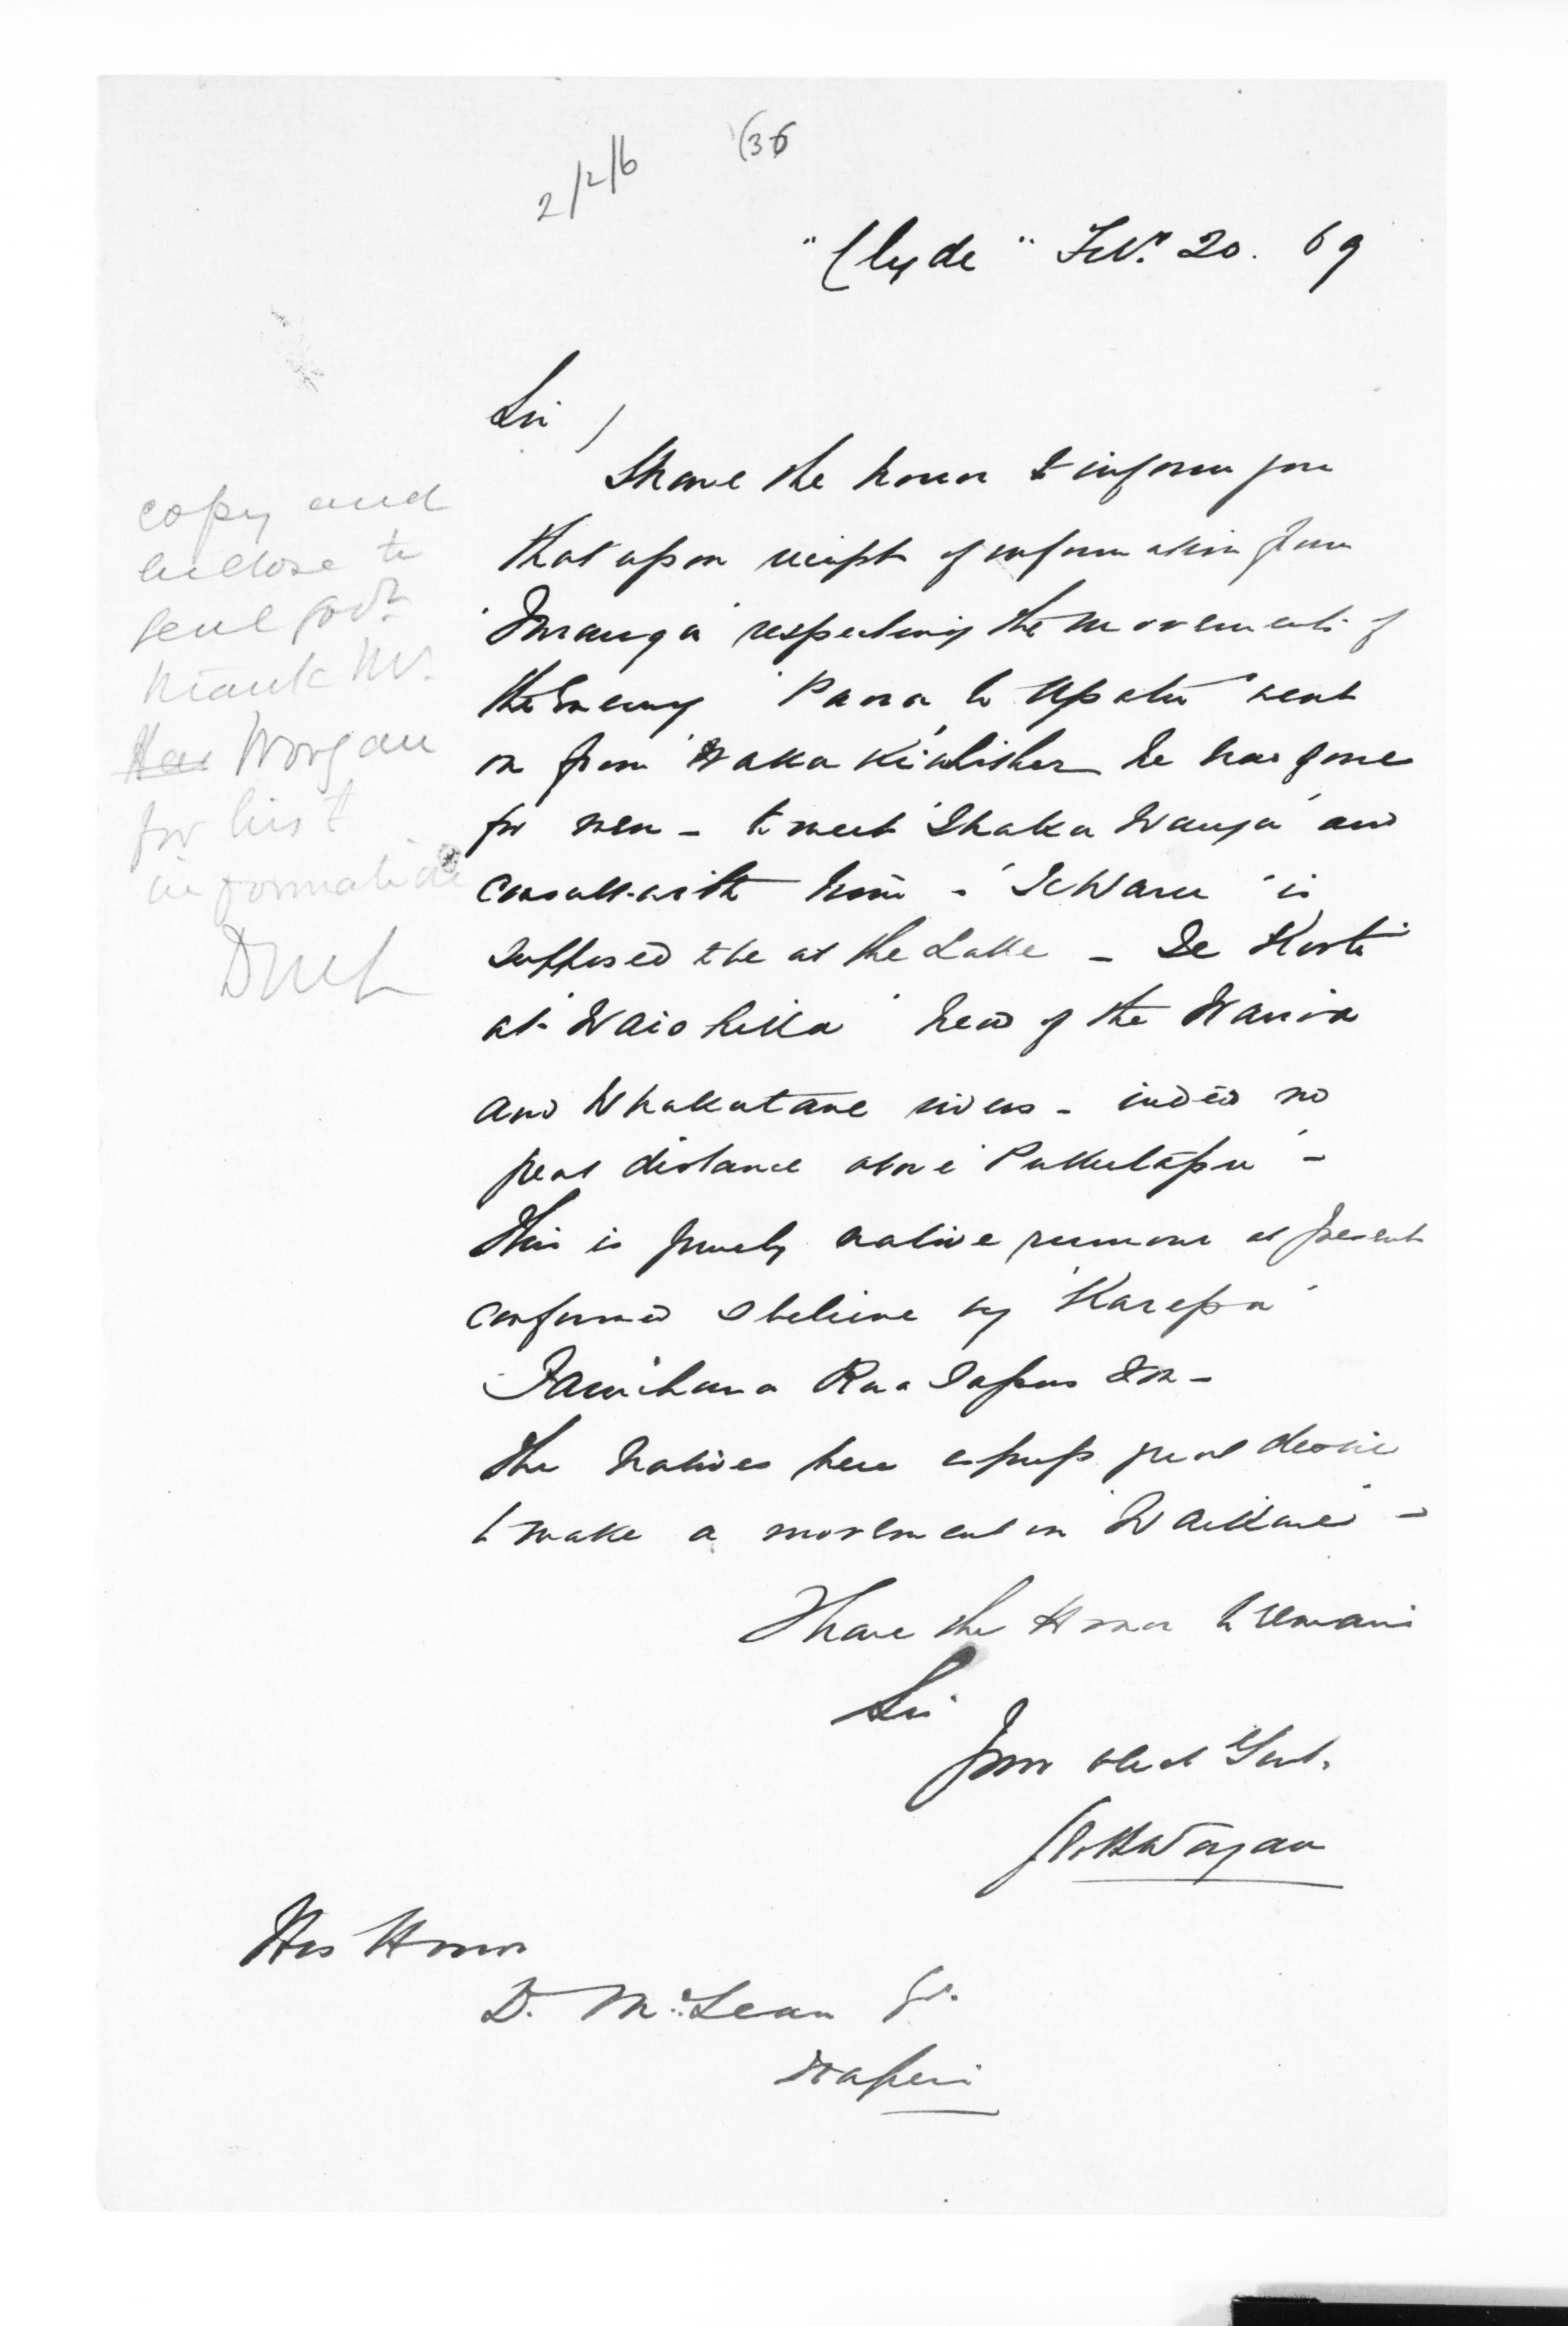 2/2/6
(36
"Clyde" Feby. 20. 69
Sir /
I have the honor to inform you
that upon receipt of information from
respecting the movements of
the Enemy "Paora te Apatu" went
on from he has gone
for men - to meet "Ihaka Wanga" and
consult with him - "Te Waru" is
supposed to be at the Lake - Te Kooti
at head of the Wairoa
and Whakatane rivers - indeed no
great distance above "Pukutapu" -
This is purely native rumour at present
confirmed I believe by "Karepa"
Tamihana Rua &c -
The Natives here express great desire
to make a movement on "Waikare" -
I have the Honor to remain
Sir
Your obed Servt.
Worgan
His Honor
D. McLean
Napier
copy and
enclose to
genl govt.
thank Mr.
Worgan
for his
information
DMcL